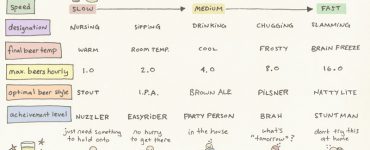 speed SLOW MEDIUM FAST
designation NURSING SIPPING DRINKING CHUGGING SLAMMING
final beer temp WARM ROOM TEMP. COOL FROSTY BRAIN FREEZE
max. beers hourly 1.0 2.0 4.0 8.0 16.0
optimal beer style STOUT I.P.A. BROWN ALE PILSNER NATTY LITE
acheivement level NUZILER EASYRIDER PARTY PERSON BRAH STUNTMAN
just need something no hurry in the house what's don't try this
to hold onto to get there "tomorrow"? at home